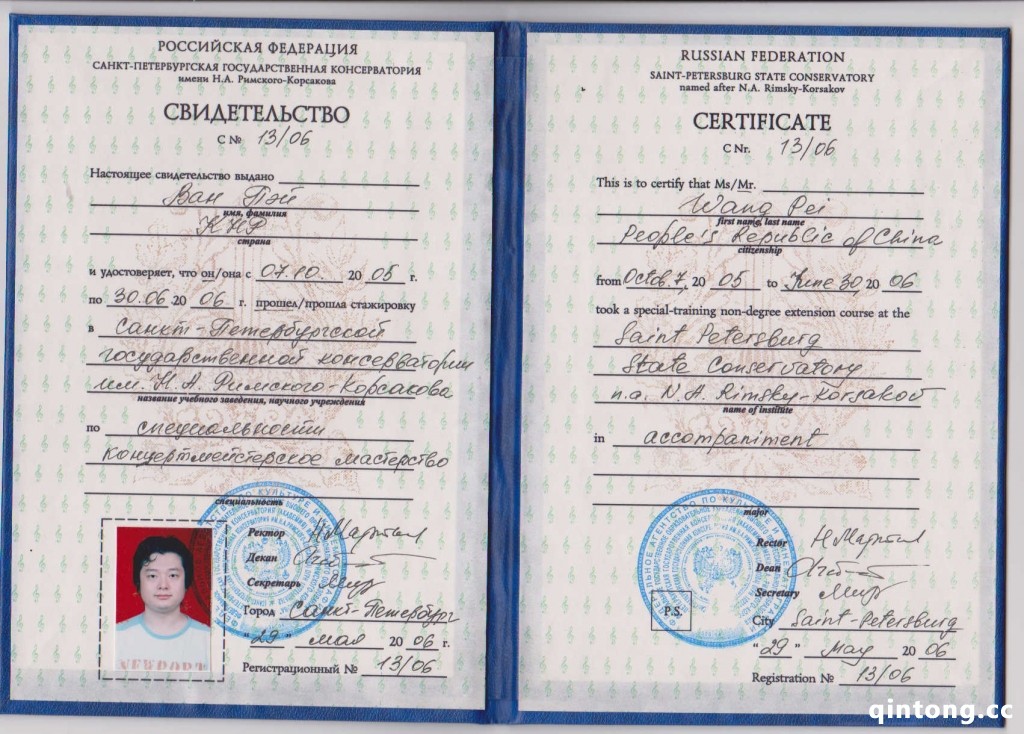 РОССИЙСКАЯ ФЕДЕРАЦИЯ
САНКТ-ПЕТЕРБУРГСКАЯ ГОСУДАРСТВЕННАЯ КОНСЕРВАТОРИЯ
имени Н.А. Римского-Корсакова
СВИДЕТЕЛЬСТВО
С № 13/06
Настоящее свидетельство выдано
Ван Пэй
имя, фамилия
КНР
страна
и удостоверяет, что он/она с 07.10. 20 05 г.
по 30.06 20 06 г. прошел/прошла стажировку
в Санкт-Петербургской
государственной консерватории
им. Н.А. Римского-Корсакова
название учебного заведения, научного учреждения
по специальности
Концертмейстерское мастерство
специальность
Ректор
Декан
Секретарь
Город Санкт-Петербург
"29" мая 20 06 г.
Регистрационный № 13/06
NEWPORT
RUSSIAN FEDERATION
SAINT-PETERSBURG STATE CONSERVATORY
named after N.A. Rimsky-Korsakov
CERTIFICATE
C Nr. 13/06
This is to certify that Ms/Mr.
Wang Pei
first name, last name
People's Republic of China
citizenship
from Octob.7, 20 05 to June 30, 20 06
took a special-training non-degree extension course at the
Saint Petersburg
State Conservatory
n.a. N.A. Rimsky-Korsakov
name of institute
in accompaniment
major
Rector
Dean
Secretary
P.S.
City Saint-Petersburg
"29" May 20 06
Registration № 13/06
qintong.cc